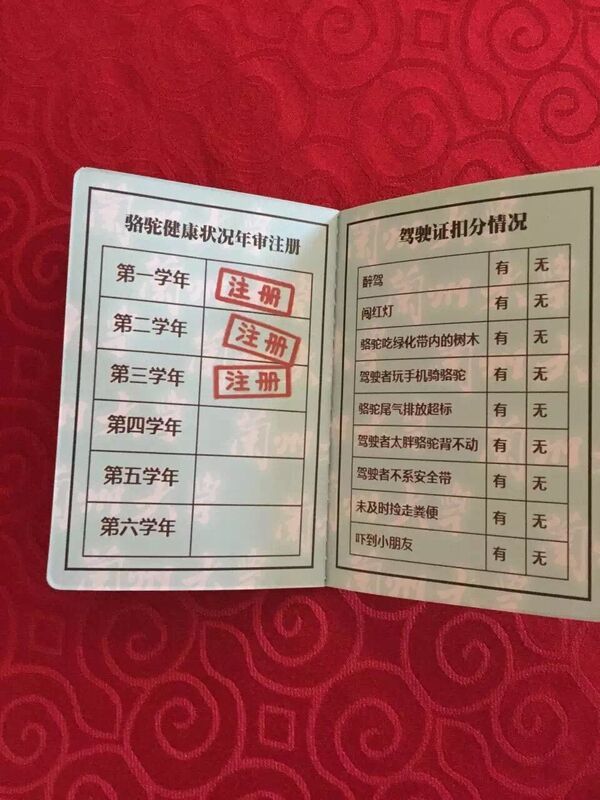 骆驼健康状况年审注册
第一学年 注册
第二学年 注册
第三学年 注册
第四学年
第五学年
第六学年
驾驶证扣分情况
醉驾 有 无
闯红灯 有 无
骆驼吃绿化带内的树木 有 无
驾驶者玩手机骑骆驼 有 无
骆驼尾气排放超标 有 无
驾驶者太胖骆驼背不动 有 无
驾驶者不系安全带 有 无
未及时捡走粪便 有 无
吓到小朋友 有 无